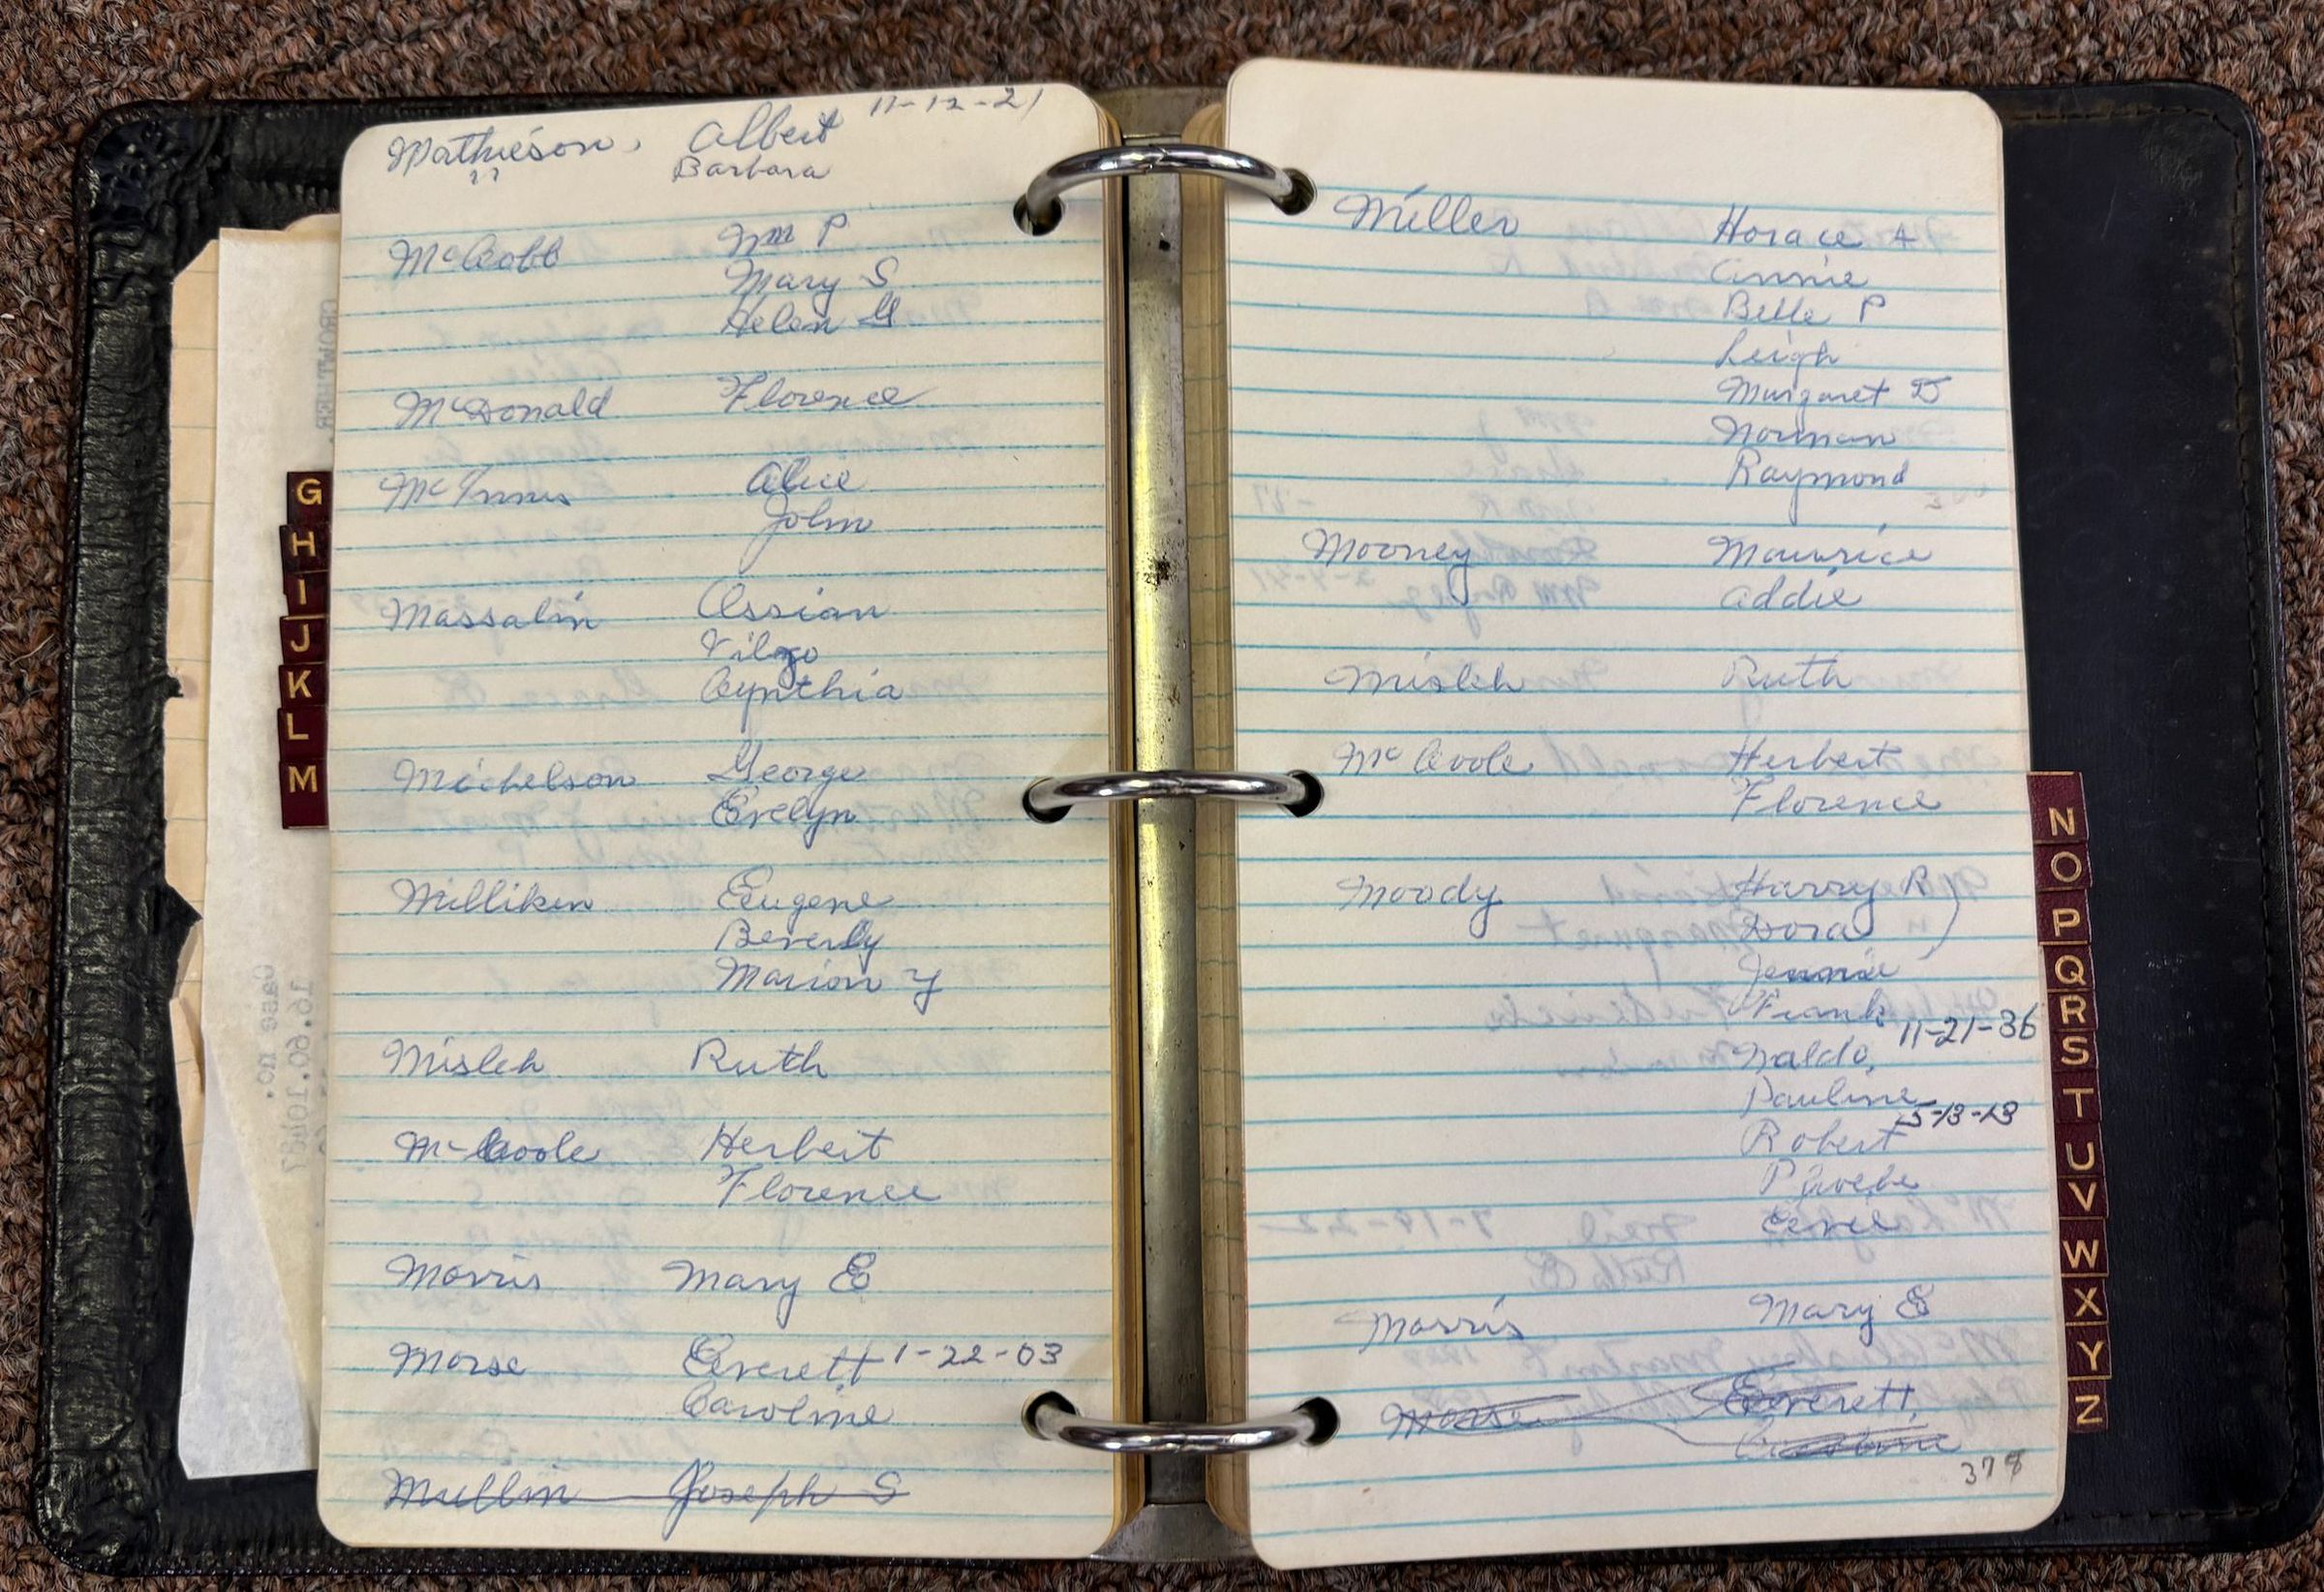 Mathieson, Albert 11-12-21
" Barbara
McCobb Wm P
Mary S
Helen G
McDonald Florence
McInnis Alice
John
Massalin Ossian
Cynthia
Michelson George
Evelyn
Milliken Eugene
Beverly
Marion Y
Misleh Ruth
McCoole Herbert
Florence
Morris Mary E
Morse Everett 1-22-03
Caroline
Mullin Joseph S
G
H
I
J
K
L
M
Miller Horace A
Annie
Belle P
Leigh
Margaret D
Norman
Raymond
Mooney Maurice
Addie
Misleh Ruth
McCoole Herbert
Florence
Moody Harry R
Dora
Jennie
Frank 11-21-36
Waldo,
Pauline
Robert
Morris Mary E
Morse Everett,
Caroline
378
N
O
P
Q
R
S
T
U
V
W
X
Y
Z